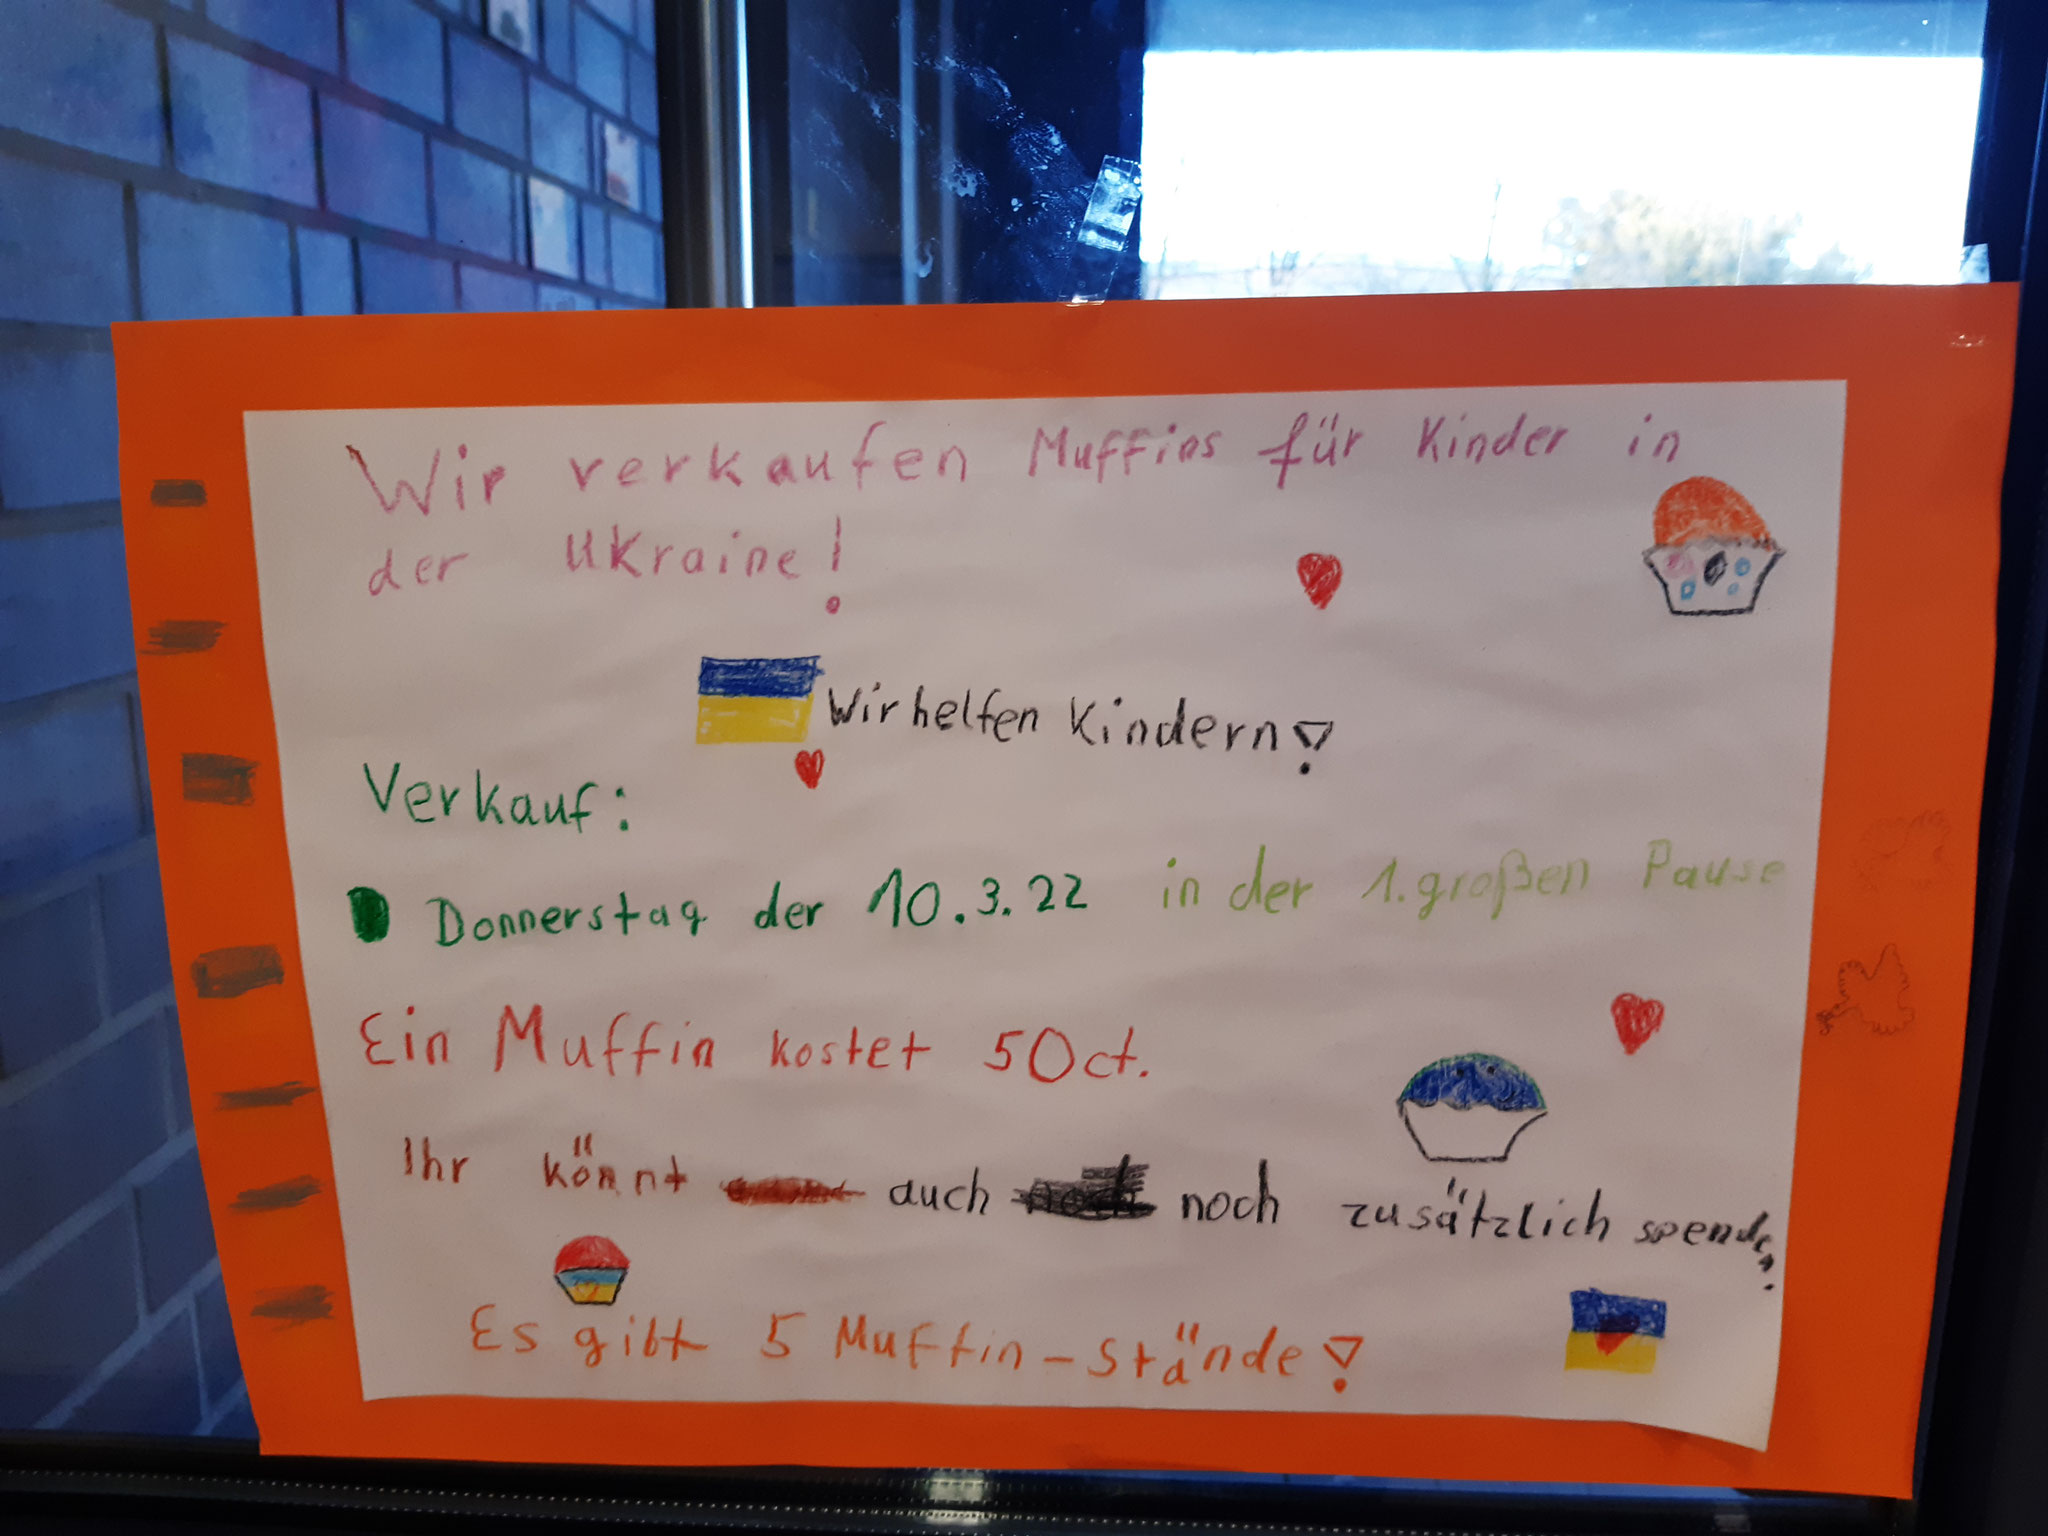 Wir verkaufen Muffins für Kinder in
der Ukraine!
Wir helfen Kindern!
Verkauf:
Donnerstag der 10.3.22 in der 1. großen Pause
Ein Muffin kostet 50ct.
Ihr könnt auch noch zusätzlich spenden.
Es gibt 5 Muffin-Stände!